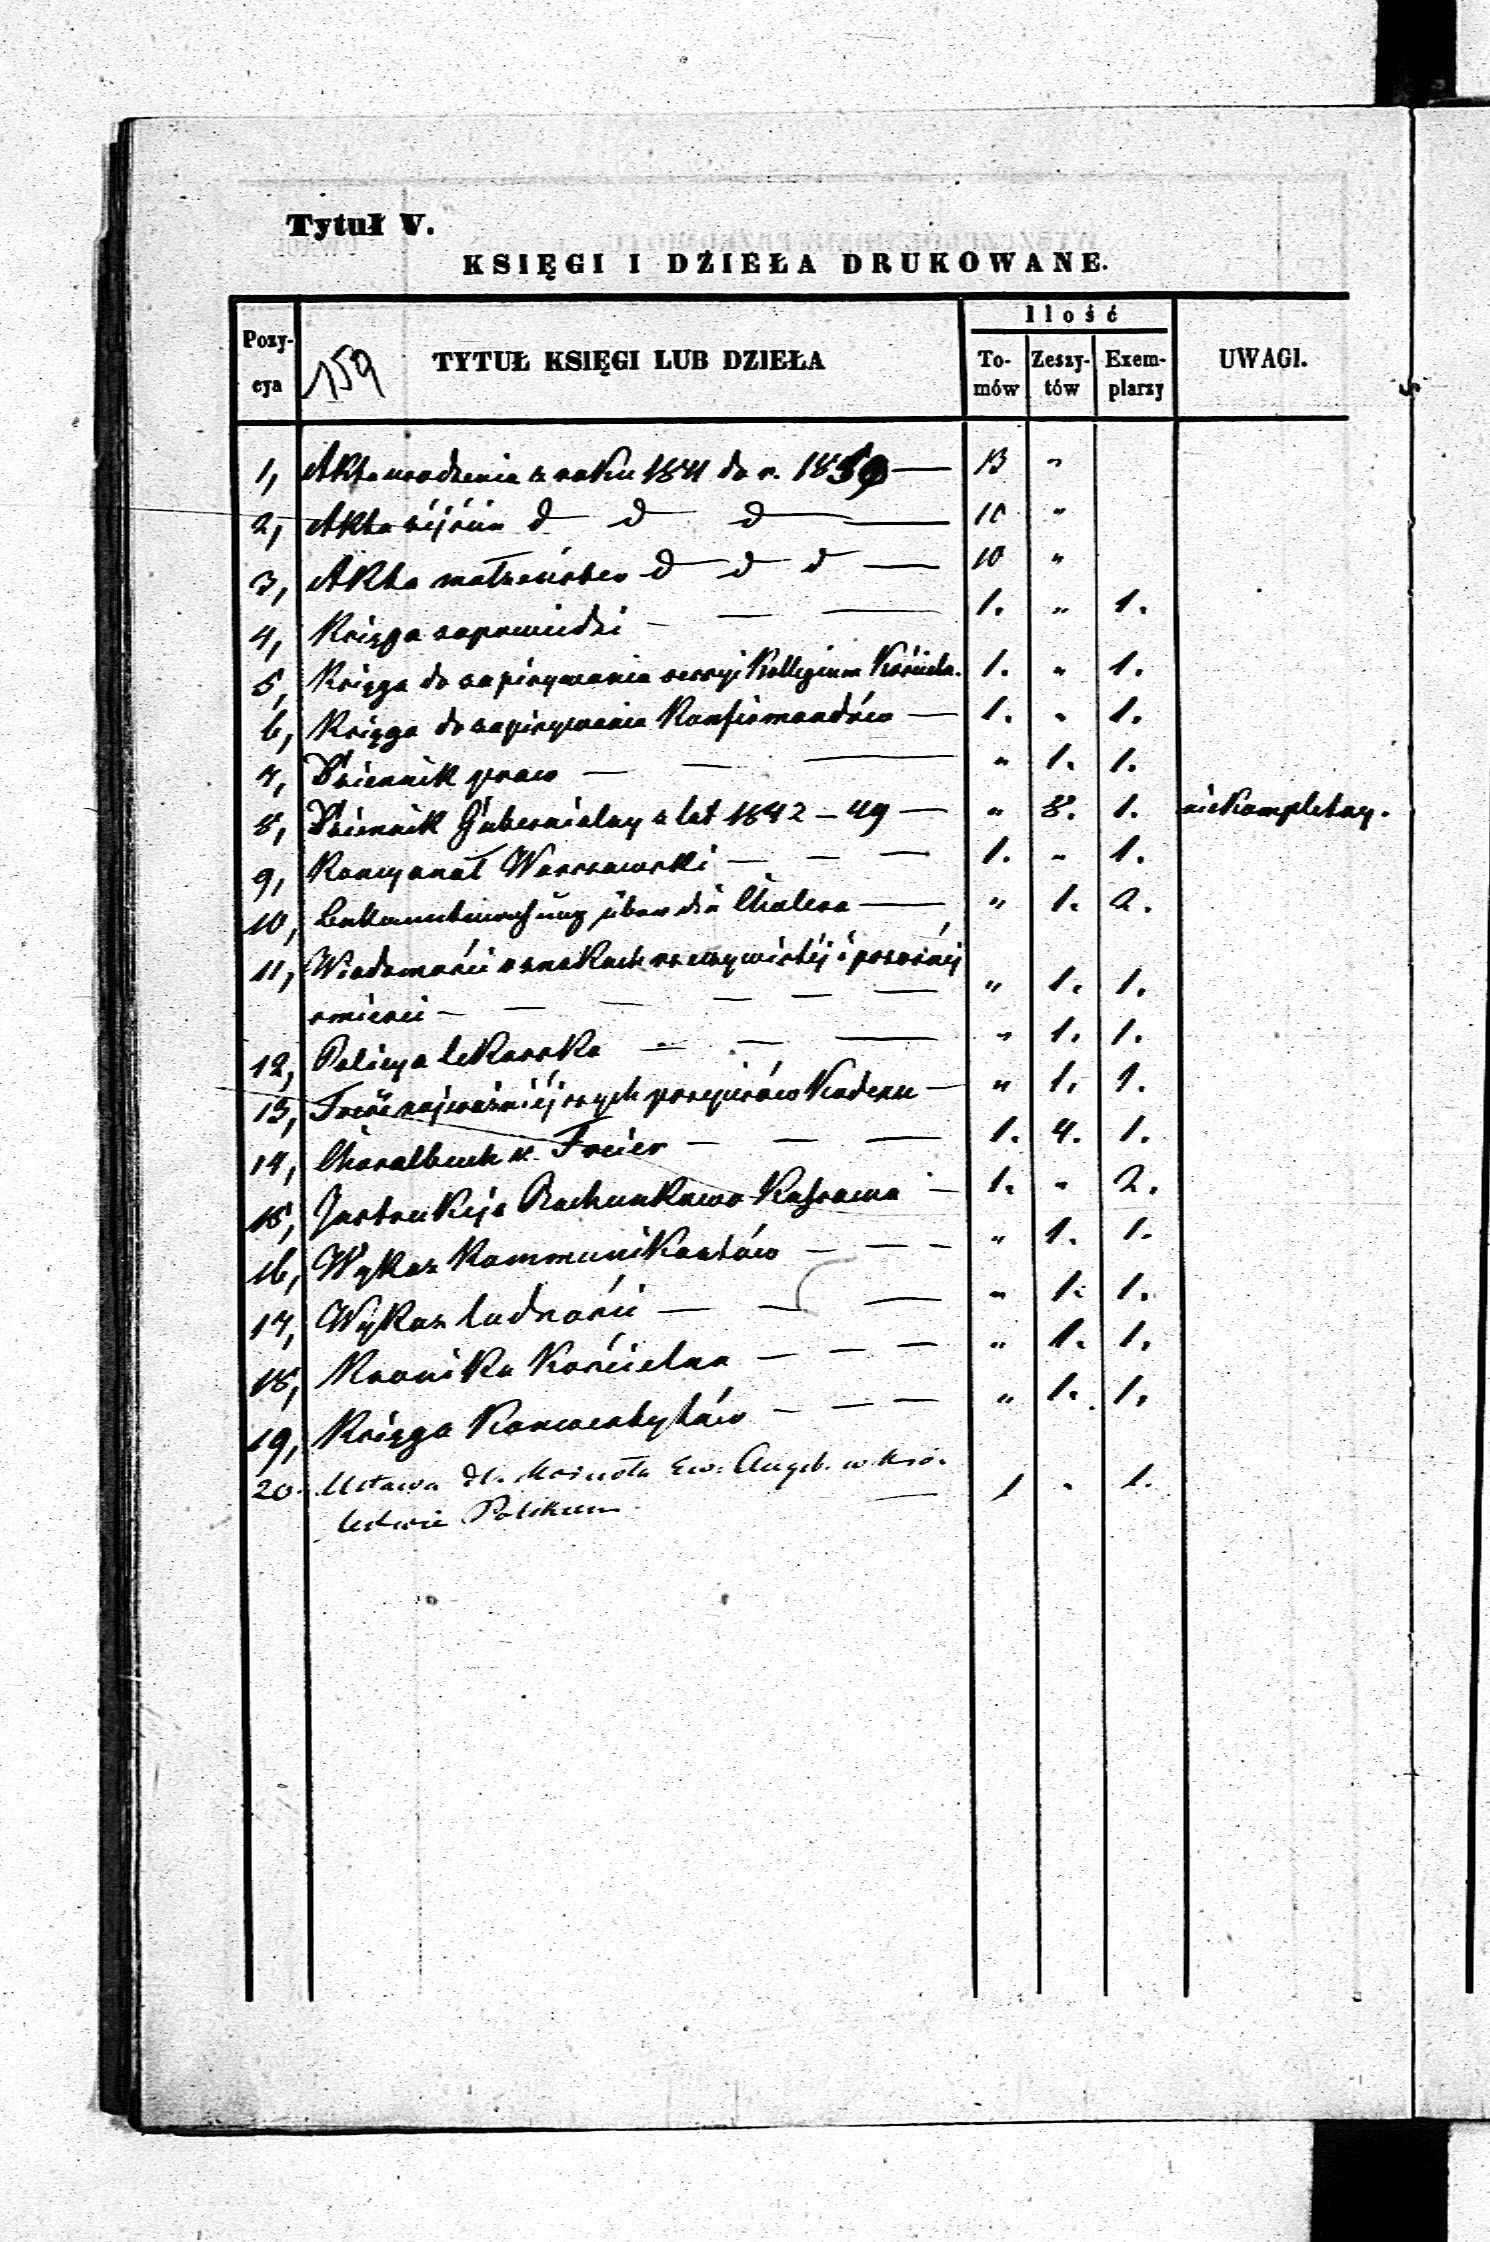 Tytuł V.
KSIĘGI I DZIEŁA DRUKOWANE.
Pozycya 159 TYTUŁ KSIĘGI LUB DZIEŁA Ilość Tomów Zeszytów Exemplarzy UWAGI.
1, Akta urodzenia z roku 1841 do r. 1850 — 13 "
2, Akta zéjścia d d d — 10 "
3, Akta małżeństw d d d — 10 "
4, Księga zapowiedzi — — — 1. " 1.
5, Księga do zapisywania sessyi Kollegium Kościeln. 1. " 1.
6, Księga do zapisywania Konfirmandów — 1. " 1.
7, Dziennik praw — — — " 1. 1.
8, Dziennik Gubernialny z lat 1842 – 49 — " 8. 1. niekompletny.
9, Koncyonał Warszawski — — — 1. " 1.
10, Bekanntmachung über die Cholera — " 1. 2.
11, Wiadomości o znakach rzeczywistéj i pozornéj
śmierci — — — — — — " 1. 1.
12, Policya lekarska — — — " 1. 1.
13, Treść najważniéjszych przepisów Kodexu — " 1. 1.
14, Choralbuch v. Freier — — — 1. 4. 1.
15, Instrukcja Rachunkowo Kassowa — 1. " 2.
16, Wykaz Kommunikantów — — — " 1. 1.
17, Wykaz ludności — — — " 1. 1.
18, Kronika Kościelna — — — " 1. 1.
19, Księga Konwertytów — — — " 1. 1.
20. Ustawa dl. Kościoła Ew. Augsb. w Kró-
lestwie Polskiem — 1 " 1.